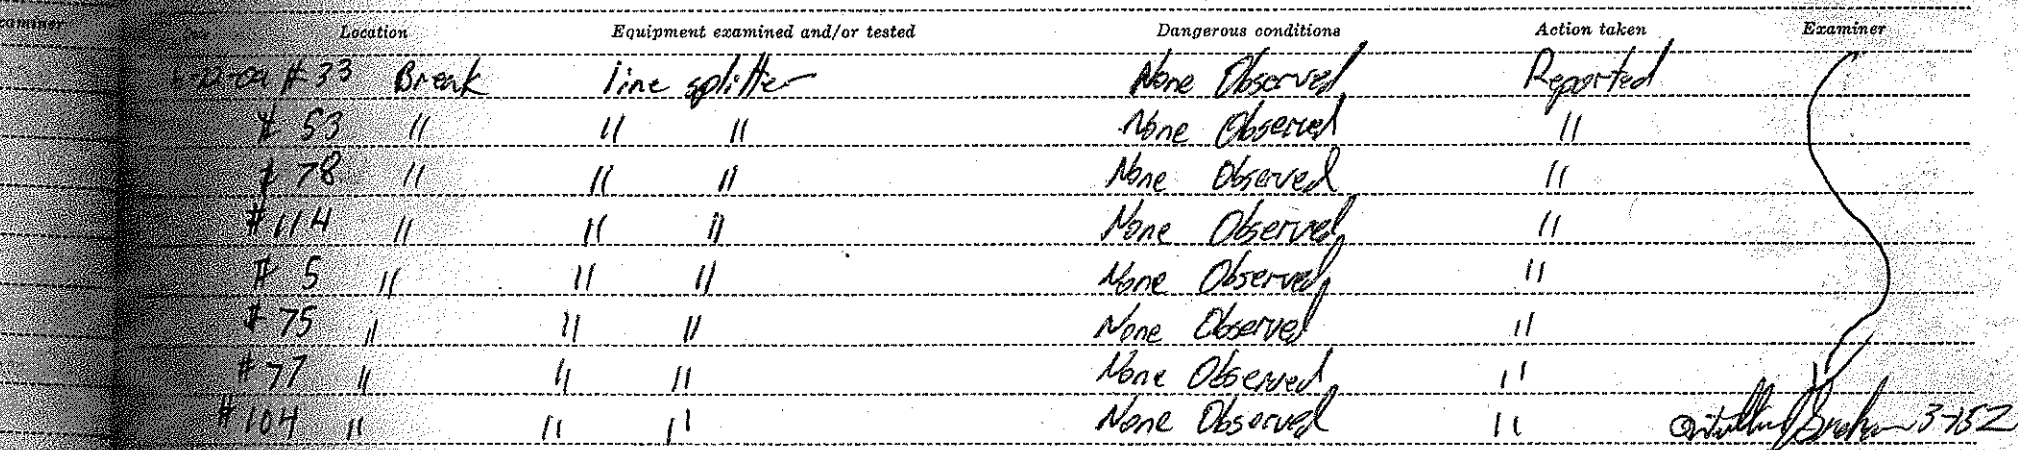 Examiner Location Equipment examined and/or tested Dangerous conditions Action taken Examiner
#33 Break line splitter None Observed Reported
# 53 " " " None Observed "
# 78 " " " None Observed "
#114 " " " None Observed "
# 5 " " " None Observed "
# 75 " " " None Observed "
# 77 " " " None Observed "
#104 " " " None Observed " 3752